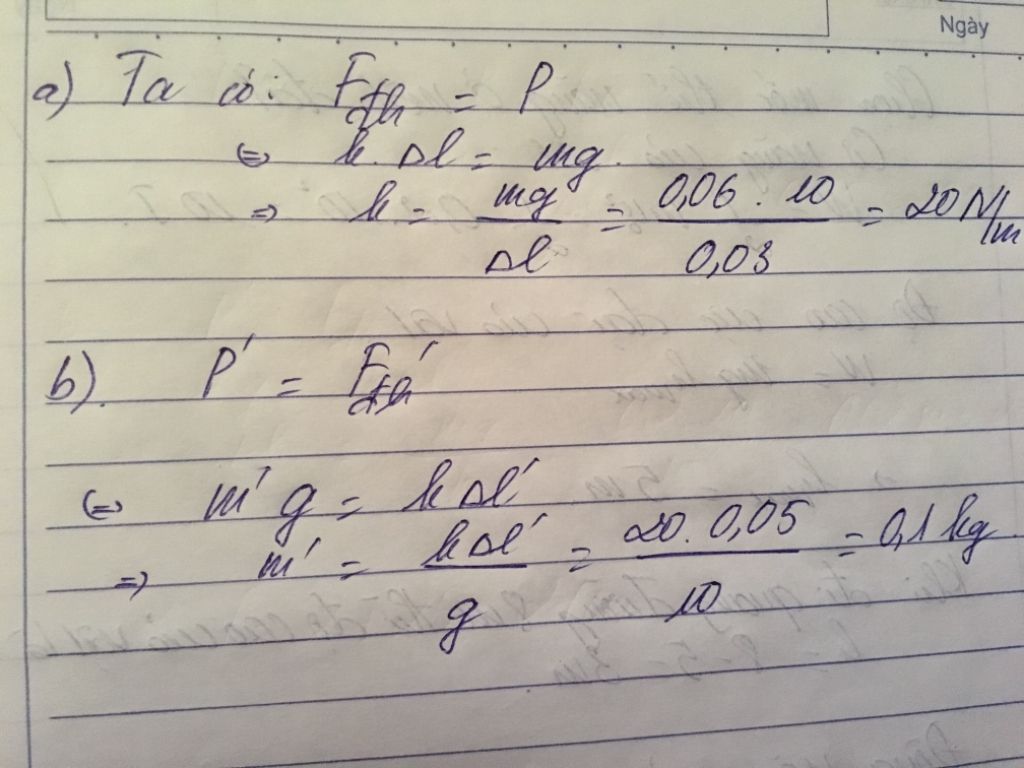 Ngày
a) Ta có: Fđh = P
⇔ k.Δl = mg.
⇒ k = mg/Δl = 0,06.10/0,03 = 20 N/m
b). P' = Fđh'
⇔ m'g = kΔl'
⇒ m' = kΔl'/g = 20.0,05/10 = 0,1 kg.